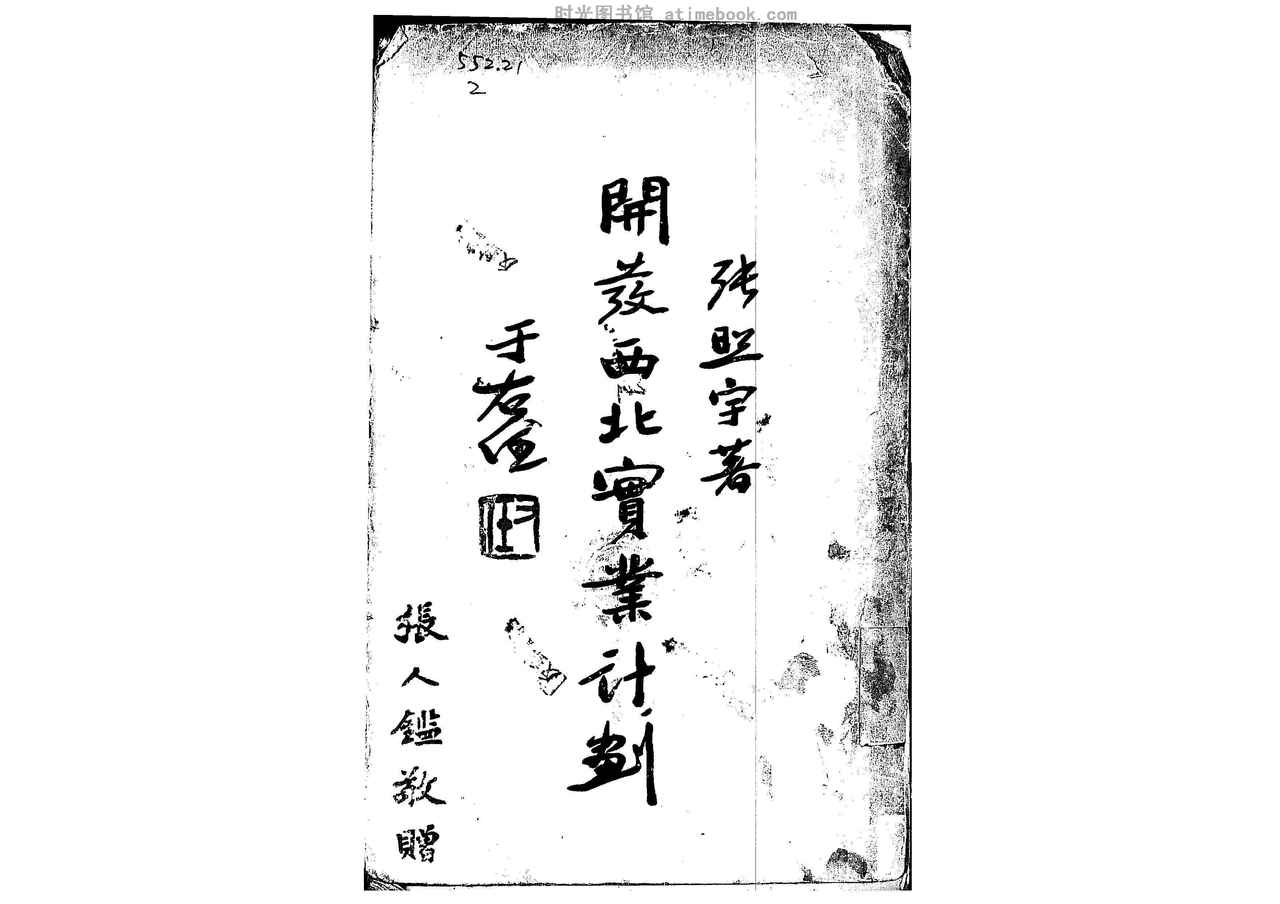 时光图书馆 atimebook.com
552.21
2
张照宇著
開發西北實業計劃
于右任
張人鑑敬贈